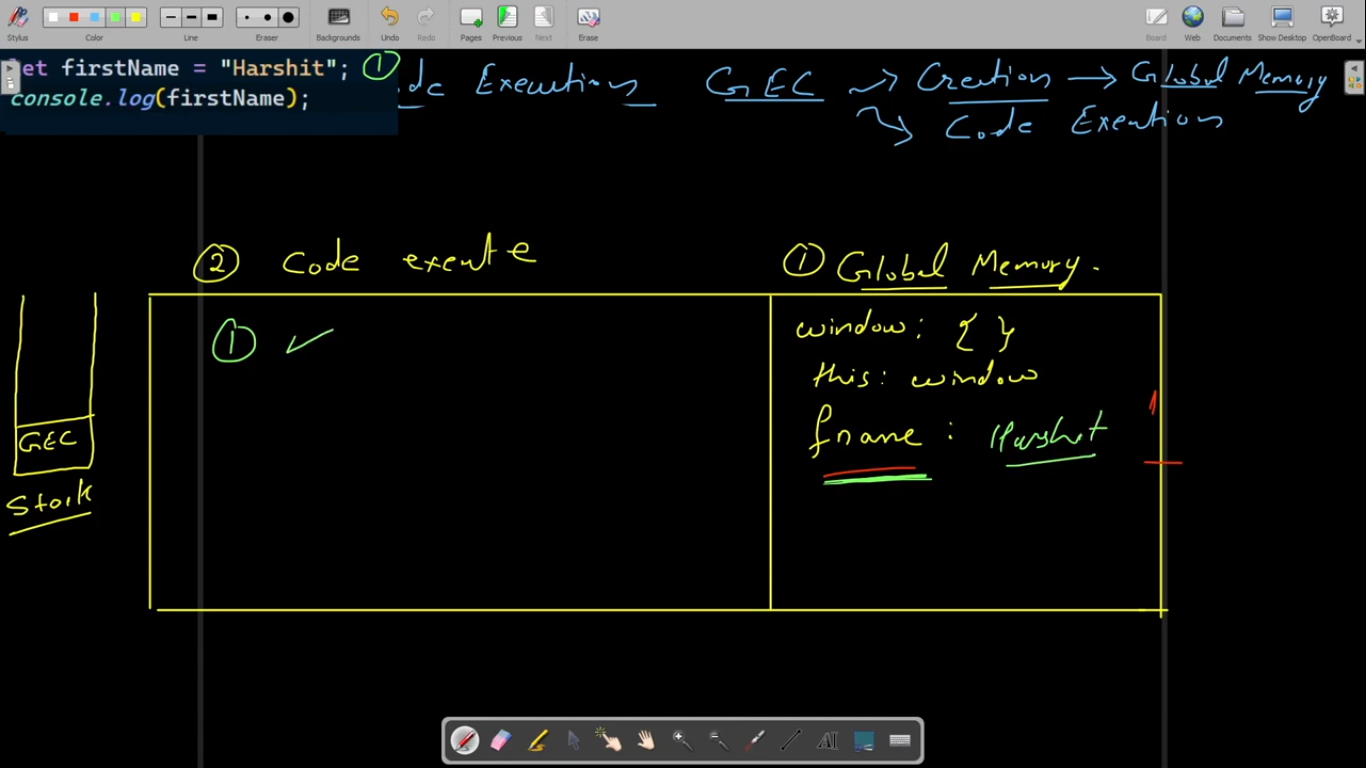 Stylus Color Line Eraser Backgrounds Undo Redo Pages Previous Next Erase Board Web Documents Show Desktop OpenBoard
let firstName = "Harshit"; ①
console.log(firstName);
de Execution GEC → Creation → Global Memory
↘ Code Execution
② Code exeute
① Global Memory.
① ✓
window: { }
this: window
fname : Harshit
GEC
Stack